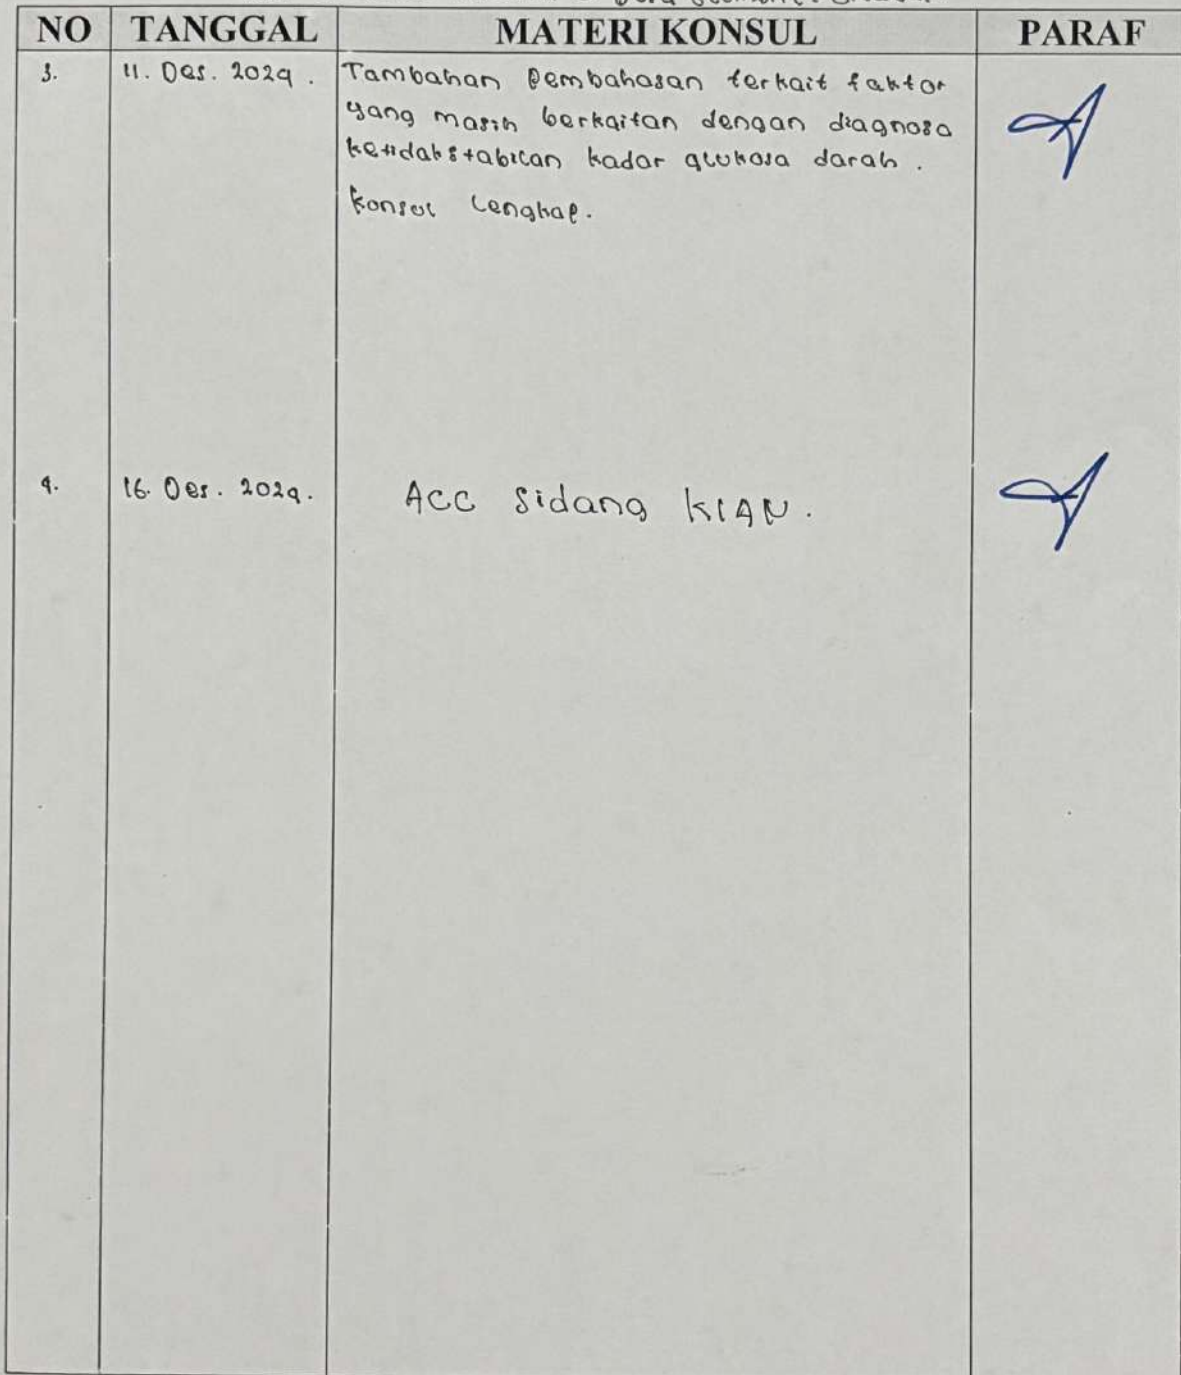 NO TANGGAL MATERI KONSUL PARAF
3. 11. Des. 2024. Tambahan Pembahasan terkait faktor
yang masih berkaitan dengan diagnosa
ketidakstabilan kadar glukosa darah.
Konsul Lengkap.
4. 16. Des. 2024. ACC Sidang KIAN.